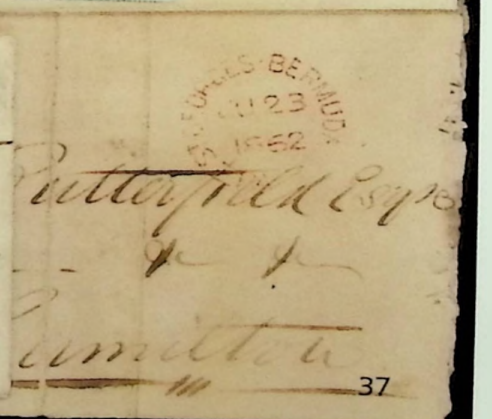 ST GEORGES BERMUDA
23
1862
Butterfield Esqre
Hamilton
37